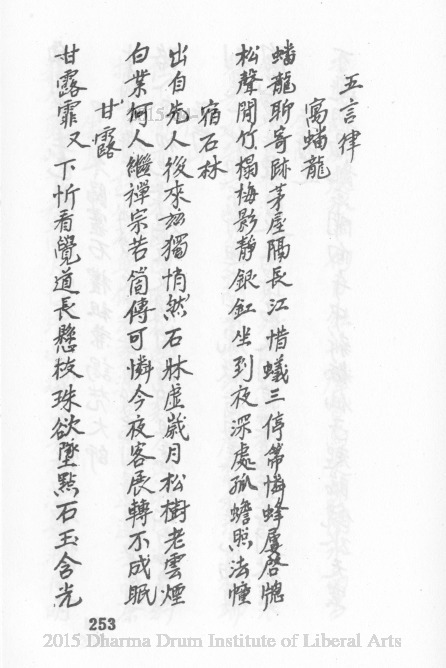 五言律
寓蟠龍
蟠龍聊寄跡茅屋隔長江惜蟻三停箒憐蜂屢啓牕
松聲閒竹榻梅影靜銀缸坐到夜深處孤蟾照法幢
宿石林
出自先人後來茲獨悄然石牀虛歲月松樹老雲煙
白業何人繼禪宗若箇傳可憐今夜客展轉不成眠
甘露
甘露霏又下忻看覺道長懸枝珠欲墜點石玉含光
253
2015 Dharma Drum Institute of Liberal Arts